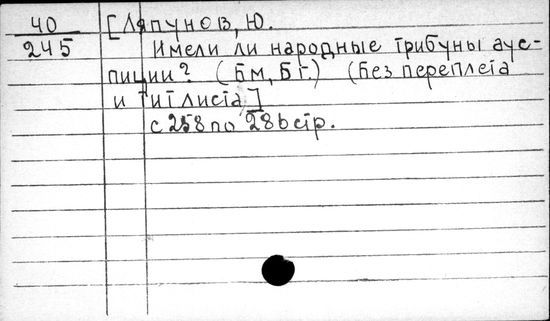 40
245
[Ляпунов, Ю.
Имели ли народные трибуны аус-
пиции? (Бм, Бг.) (без переплета
и титлиста]
с 258 по 286 стр.